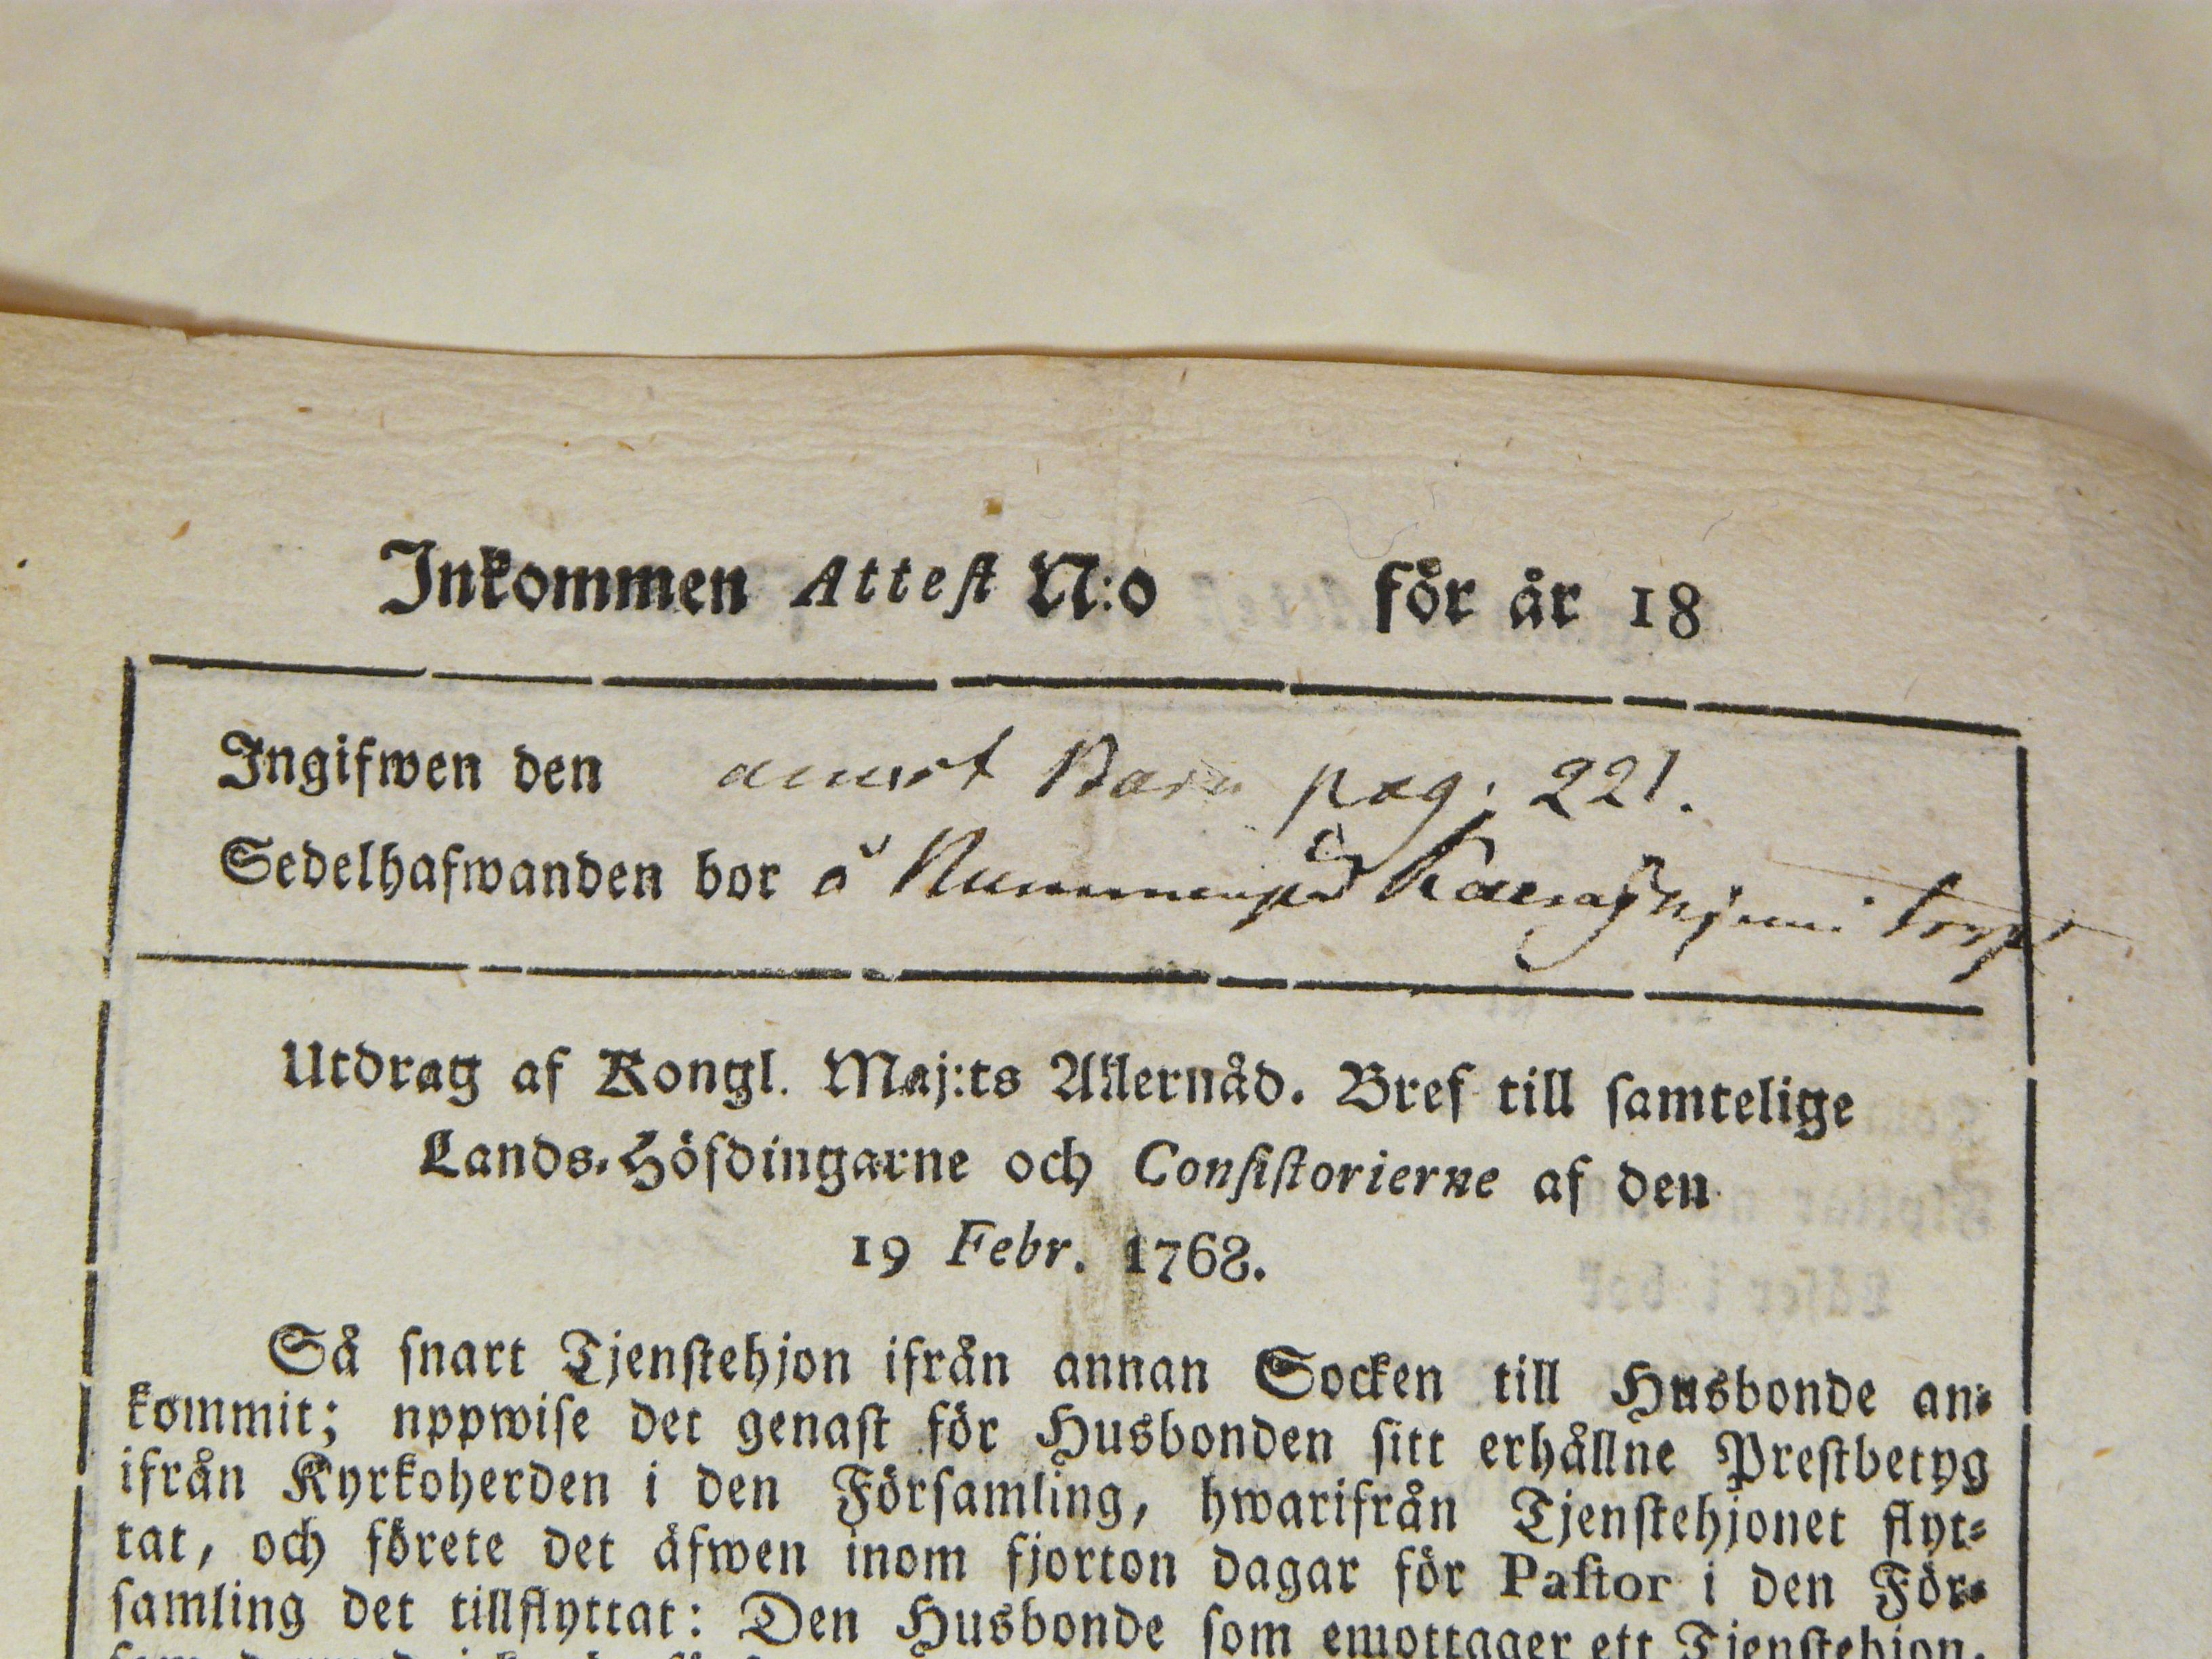 Inkommen Attest N:o för år 18
Ingifwen den pag. 221.
Sedelhafwanden bor å torp
Utdrag af Kongl. Maj:ts Allernåd. Bref till samtelige
Lands-Höfdingarne och Consistorierne af den
19 Febr. 1768.
Så snart Tjenstehjon ifrån annan Socken till Husbonde an-
kommit; nppwise det genast för Husbonden sitt erhållne Prestbetyg
ifrån Kyrkoherden i den Församling, hwarifrån Tjenstehjonet flyt-
tat, och förete det äfwen inom fjorton dagar för Pastor i den För-
samling det tillflyttat: Den Husbonde som emottager ett Tjenstehjon,